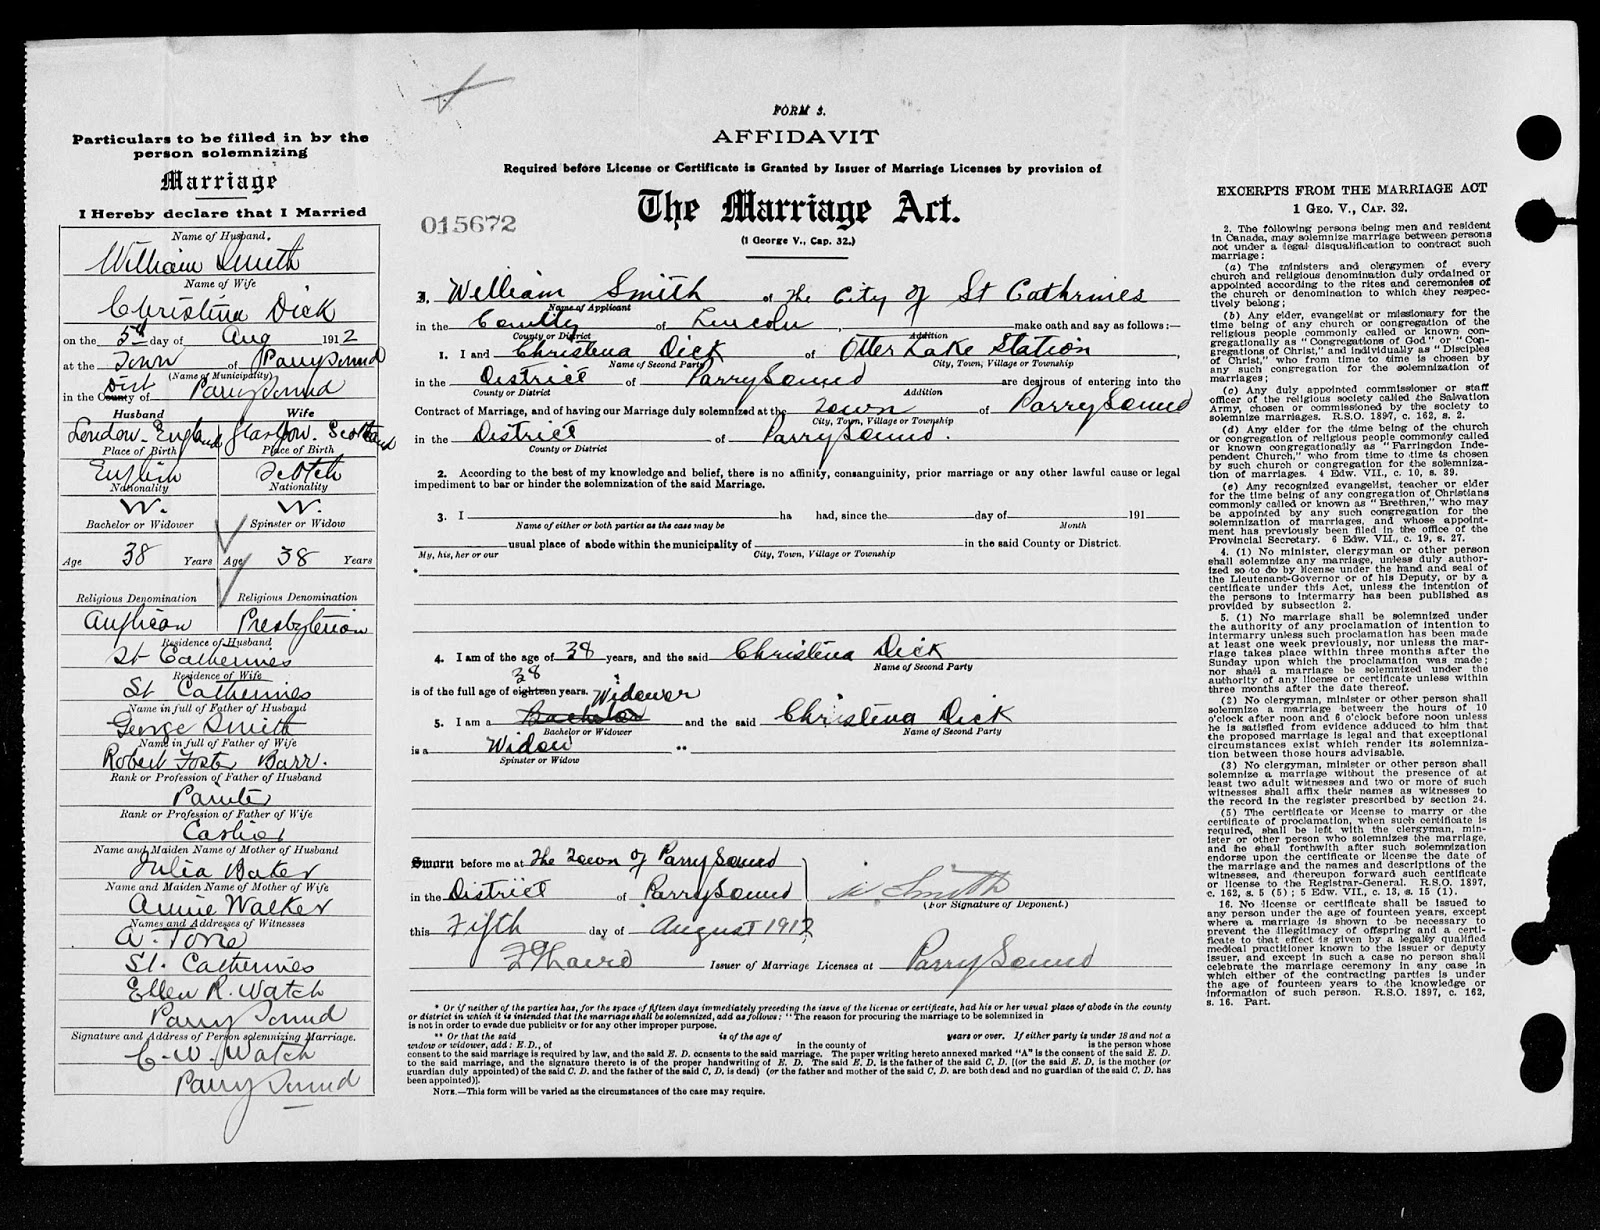 Particulars to be filled in by the
person solemnizing
Marriage
I Hereby declare that I Married
Name of Husband.
William Smith
Name of Wife
Christina Dick
on the 5th day of Aug 1912
at the Town of Parry Sound
(Name of Municipality)
Dist
in the County of Parry Sound
Husband Wife
London - England Glasgow. Scotland
Place of Birth Place of Birth
English Scotch
Nationality Nationality
W. W.
Bachelor or Widower Spinster or Widow
Age 38 Years Age 38 Years
Religious Denomination Religious Denomination
Anglican Presbyterian
Residence of Husband
St Catherines
Residence of Wife
St Catherines
Name in full of Father of Husband
George Smith
Name in full of Father of Wife
Robert Foster Barr.
Rank or Profession of Father of Husband
Painter
Rank or Profession of Father of Wife
Cashier
Name and Maiden Name of Mother of Husband
Julia Baker
Name and Maiden Name of Mother of Wife
Annie Walker
Names and Addresses of Witnesses
A.
St. Catherines
Ellen R. Watch
Parry Sound
Signature and Address of Person solemnizing Marriage.
C. W. Watch
Parry Sound
FORM 3.
AFFIDAVIT
Required before License or Certificate is Granted by Issuer of Marriage Licenses by provision of
The Marriage Act.
015672
(1 George V., Cap. 32.)
I, William Smith of The City of St Cathrines
Name of Applicant
in the County of Lincoln, make oath and say as follows:—
County or District Addition
1. I and Christena Dick of Otter Lake Station,
Name of Second Party City, Town, Village or Township
in the District of Parry Sound are desirous of entering into the
County or District Addition
Contract of Marriage, and of having our Marriage duly solemnized at the Town of Parry Sound
City, Town, Village or Township
in the District of Parry Sound.
County or District
2. According to the best of my knowledge and belief, there is no affinity, consanguinity, prior marriage or any other lawful cause or legal
impediment to bar or hinder the solemnization of the said Marriage.
3. I ha had, since the day of 191
Name of either or both parties as the case may be Month
usual place of abode within the municipality of in the said County or District.
My, his, her or our City, Town, Village or Township
*
4. I am of the age of 38 years, and the said Christena Dick
Name of Second Party
38
is of the full age of eighteen years.
Widower
5. I am a Bachelor and the said Christena Dick
Bachelor or Widower Name of Second Party
is a Widow **
Spinster or Widow
Sworn before me at The Town of Parry Sound
in the District of Parry Sound W. Smith
(For Signature of Deponent.)
this Fifth day of August 1912
Issuer of Marriage Licenses at Parry Sound
* Or if neither of the parties has, for the space of fifteen days immediately preceding the issue of the license or certificate, had his or her usual place of abode in the county
or district in which it is intended that the marriage shall be solemnized, add as follows: "The reason for procuring the marriage to be solemnized in
is not in order to evade due publicity or for any other improper purpose.
** Or that the said is of the age of years or over. If either party is under 18 and not a
widow or widower, add: E.D., of in the county of is the person whose
consent to the said marriage is required by law, and the said E. D. consents to the said marriage. The paper writing hereto annexed marked "A" is the consent of the said E. D.
to the said marriage, and the signature thereto is of the proper handwriting of E. D. The said E. D. is the father of the said C. D. [(or the said E. D. is the mother (or
guardian duly appointed) of the said C. D. and the father of the said C. D. is dead) (or the father and mother of the said C. D. are both dead and no guardian of the said C. D. has
been appointed)].
NOTE.—This form will be varied as the circumstances of the case may require.
EXCERPTS FROM THE MARRIAGE ACT
1 GEO. V., CAP. 32.
2. The following persons being men and resident
in Canada, may solemnize marriage between persons
not under a legal disqualification to contract such
marriage:
(a) The ministers and clergymen of every
church and religious denomination duly ordained or
appointed according to the rites and ceremonies of
the church or denomination to which they respec-
tively belong;
(b) Any elder, evangelist or missionary for the
time being of any church or congregation of the
religious people commonly called or known con-
gregationally as "Congregations of God" or "Con-
gregations of Christ," and individually as "Disciples
of Christ," who from time to time is chosen by
any such congregation for the solemnization of
marriages;
(c) Any duly appointed commissioner or staff
officer of the religious society called the Salvation
Army, chosen or commissioned by the society to
solemnize marriages. R.S.O. 1897, c. 162, s. 2.
(d) Any elder for the time being of the church
or congregation of religious people commonly called
or known congregationally as "Farringdon Inde-
pendent Church," who from time to time is chosen
by such church or congregation for the solemniza-
tion of marriages. 4 Edw. VII., c. 10, s. 39.
(e) Any recognized evangelist, teacher or elder
for the time being of any congregation of Christians
commonly called or known as "Brethren," who may
be appointed by any such congregation for the
solemnization of marriages, and whose appoint-
ment has previously been filed in the office of the
Provincial Secretary. 6 Edw. VII., c. 19, s. 27.
4. (1) No minister, clergyman or other person
shall solemnize any marriage, unless duly author-
ized so to do by license under the hand and seal of
the Lieutenant-Governor or of his Deputy, or by a
certificate under this Act, unless the intention of
the persons to intermarry has been published as
provided by subsection 2.
5. (1) No marriage shall be solemnized under
the authority of any proclamation of intention to
intermarry unless such proclamation has been made
at least one week previously, nor unless the mar-
riage takes place within three months after the
Sunday upon which the proclamation was made;
nor shall a marriage be solemnized under the
authority of any license or certificate unless within
three months after the date thereof.
(2) No clergyman, minister or other person shall
solemnize a marriage between the hours of 10
o'clock after noon and 6 o'clock before noon unless
he is satisfied from evidence adduced to him that
the proposed marriage is legal and that exceptional
circumstances exist which render its solemniza-
tion between those hours advisable.
(3) No clergyman, minister or other person shall
solemnize a marriage without the presence of at
least two adult witnesses and two or more of such
witnesses shall affix their names as witnesses to
the record in the register prescribed by section 24.
(5) The certificate or license to marry or the
certificate of proclamation, when such certificate is
required, shall be left with the clergyman, min-
ister or other person who solemnizes the marriage,
and he shall forthwith after such solemnization
endorse upon the certificate or license the date of
the marriage and the names and descriptions of the
witnesses, and thereupon forward such certificate
or license to the Registrar-General. R.S.O. 1897,
c. 162, s. 5 (5); 5 Edw. VII., c. 13, s. 15 (1).
16. No license or certificate shall be issued to
any person under the age of fourteen years, except
where a marriage is shown to be necessary to
prevent the illegitimacy of offspring and a certi-
ficate to that effect is given by a legally qualified
medical practitioner known to the issuer or deputy
issuer, and except in such a case no person shall
celebrate the marriage ceremony in any case in
which either of the contracting parties is under
the age of fourteen years to the knowledge or
information of such person. R.S.O. 1897, c. 162,
s. 16. Part.